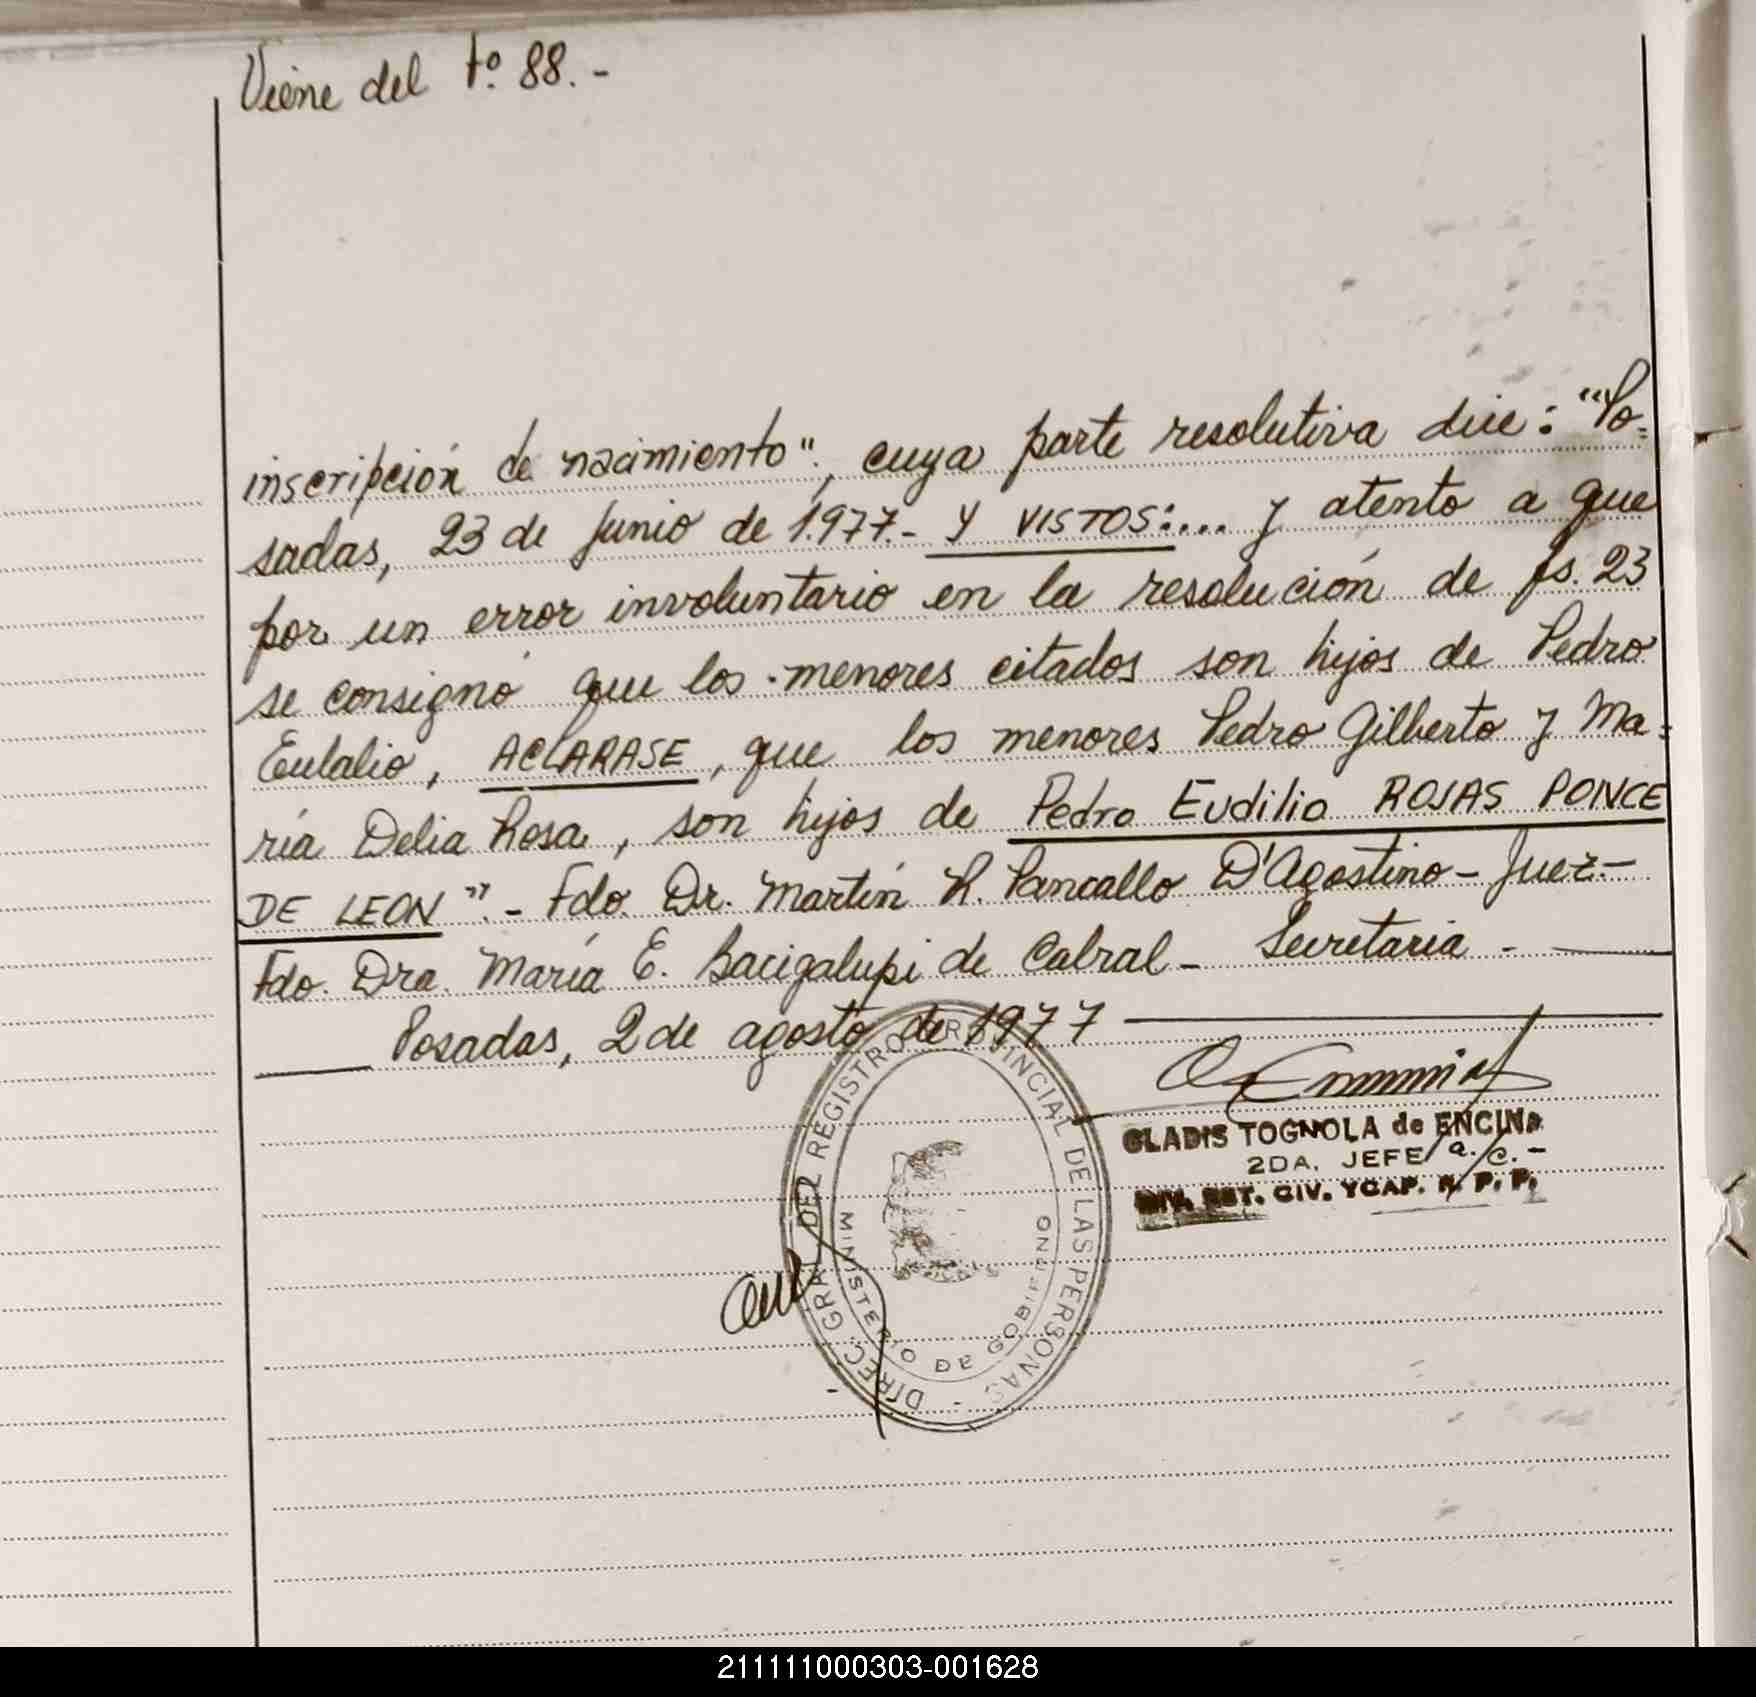 Viene del tº. 88.-
inscripción de nacimiento", cuya parte resolutiva dice: "Po=
sadas, 23 de Junio de 1.977.- Y VISTOS:.... y atento a que
por un error involuntario en la resolución de fs. 23
se consignó que los menores citados son hijos de Pedro
Eulalio, ACLARASE, que los menores Pedro Gilberto y Ma=
ría Delia Rosa, son hijos de Pedro Eudilio ROJAS PONCE
DE LEON".- Fdo. Dr. Martín R. Pancallo D'Agostino - Juez.-
Fdo. Dra. María E. Bacigalupi de Cabral - Secretaria -
Posadas, 2 de agosto de 1977
DIREC. GRAL. DEL REGISTRO PROVINCIAL DE LAS PERSONAS -
MINISTERIO DE GOBIERNO
GLADIS TOGNOLA de ENCINA
2DA. JEFE a. c. -
EST. CIV. YCAP. R. P. P.
211111000303-001628